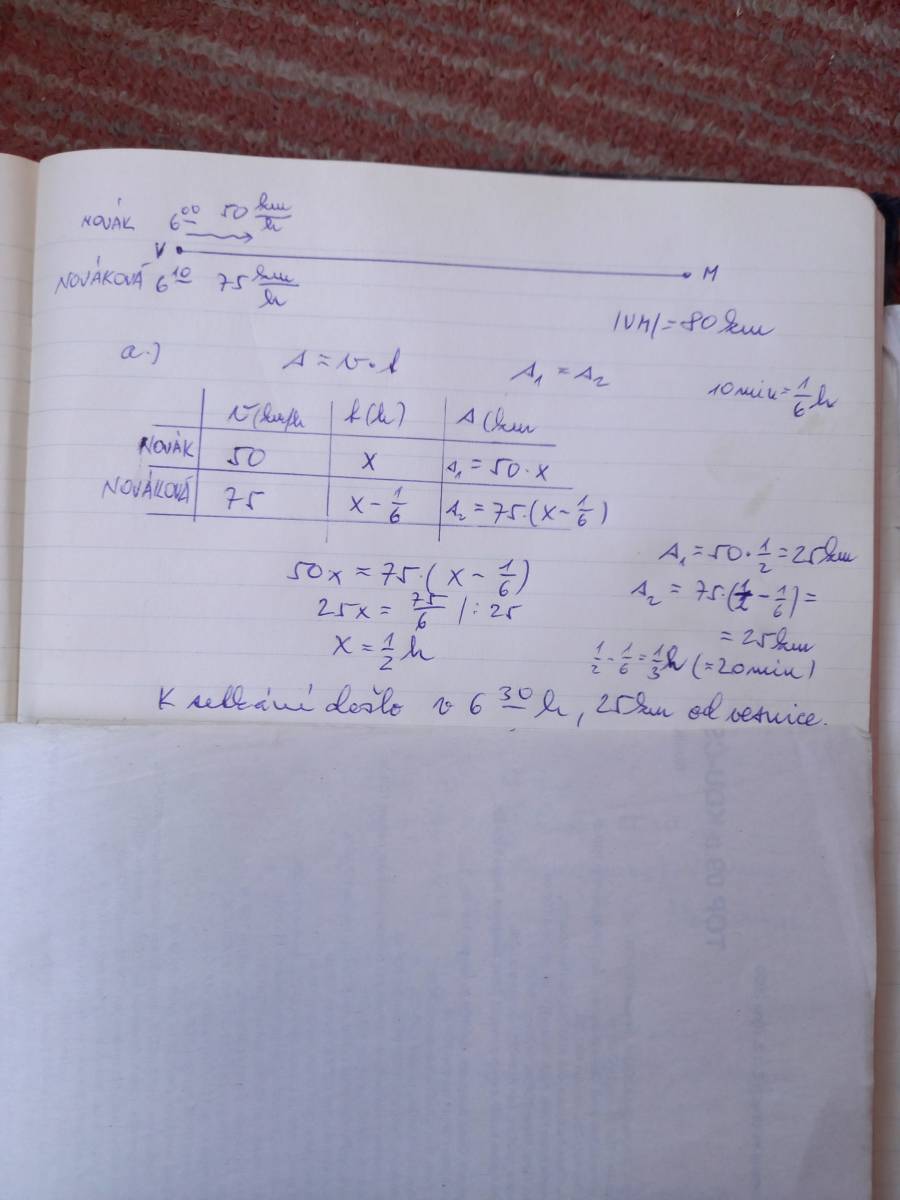 NOVÁK 6⁰⁰ 50 km/h
V M
NOVÁKOVÁ 6¹⁰ 75 km/h
|VM| = 80 km
a.) s = v·t s₁ = s₂ 10 min = 1/6 h
v(km/h t(h) s(km
NOVÁK 50 x s₁ = 50·x
NOVÁKOVÁ 75 x - 1/6 s₂ = 75·(x - 1/6)
50x = 75·(x - 1/6)
25x = 75/6 /:25
x = 1/2 h
s₁ = 50·1/2 = 25 km
s₂ = 75·(1/2 - 1/6) =
= 25 km
1/2 - 1/6 = 1/3 h (= 20 min)
K setkání došlo v 6³⁰ h, 25 km od vesnice.